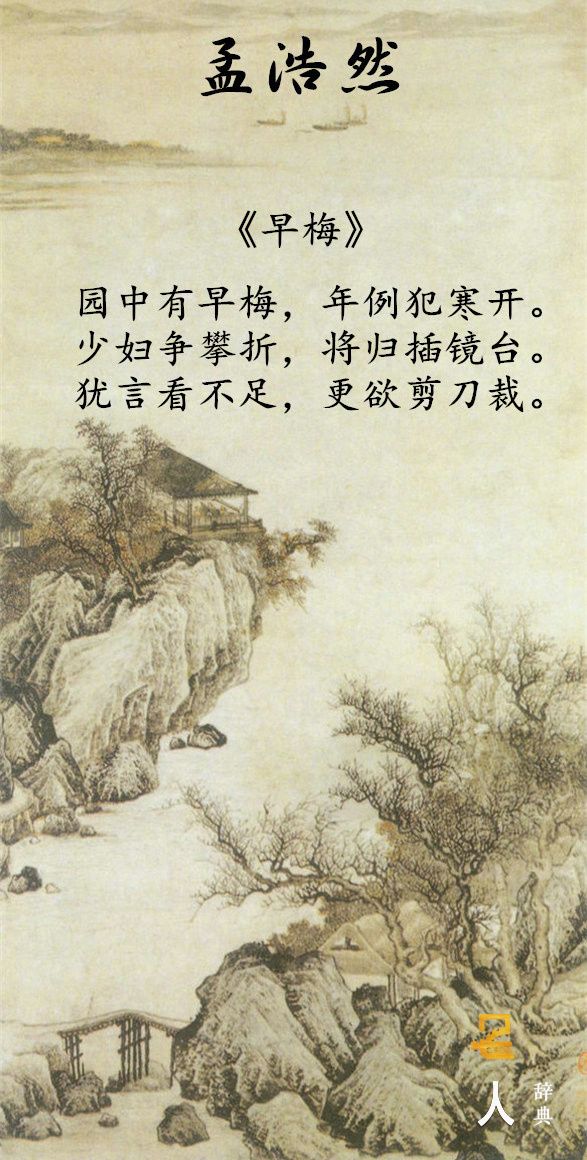 孟浩然
《早梅》
园中有早梅，年例犯寒开。
少妇争攀折，将归插镜台。
犹言看不足，更欲剪刀裁。
名人
辞典